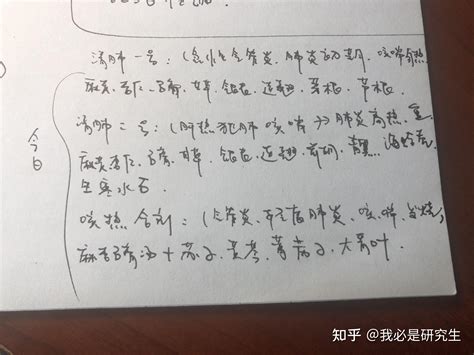 清肺一号：(急性支气管炎、肺炎初期、咳喘身热
麻黄、杏仁、石膏、甘草、银花、连翘、芦根、茅根、
清肺二号：(肝热犯肺 咳喘 → 肺炎高热、
麻黄杏仁、石膏、甘草、银花、连翘、前胡、青黛、海蛤壳、
生寒水石
今日
咳热合剂：(气管炎、病毒肺炎、咳、喘、发烧，
麻杏石膏汤＋苏子、黄芩、葶苈子、大青叶．
知乎 @我必是研究生